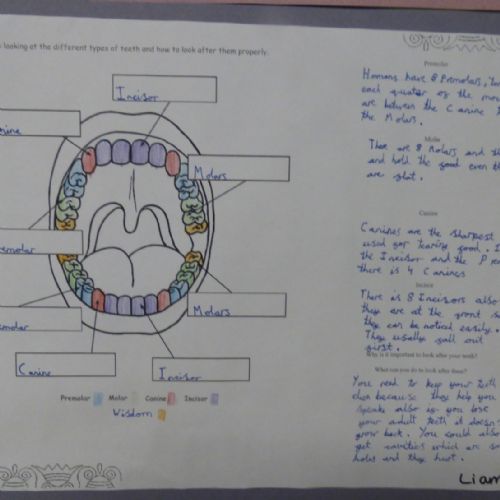 looking at the different types of teeth and how to look after them properly.
Incisor
Molars
Molars
Canine
Incisor
Premolar Molar Canine Incisor
Wisdom
Premolar
Humans have 8 Premolars,
each quater of the
are between the Canine
the Molars.
Molar
There are 8 Molars and
and hold the food even
are shut.
Canine
Canines are the sharpest
used for tearing food.
the Incisor and the
there is 4 Canines
Incisor
There is 8 Incisors also
they are at the front
they can be noticed easily.
They usually fall out
first.
Why is it important to look after your teeth?
What can you do to look after them?
You need to keep your teeth
clean because they help you
speak also if you lose
your adult teeth it doesn
grow back. You could also
get cavities which are
holes and they hurt.